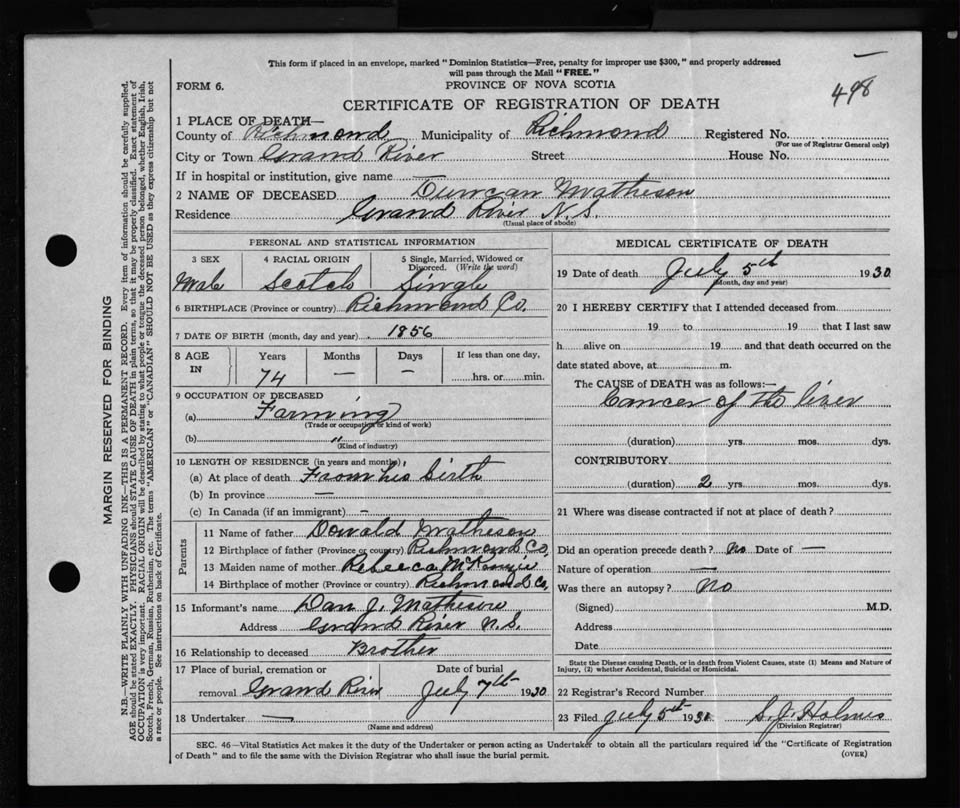 This form if placed in an envelope, marked "Dominion Statistics—Free, penalty for improper use $300," and properly addressed
will pass through the Mail "FREE."
FORM 6.
PROVINCE OF NOVA SCOTIA
498
CERTIFICATE OF REGISTRATION OF DEATH
1 PLACE OF DEATH—
County of Richmond Municipality of Richmond Registered No.
(For use of Registrar General only)
City or Town Grand River Street House No.
If in hospital or institution, give name —
2 NAME OF DECEASED Duncan Matheson
Residence Grand River N.S.
(Usual place of abode)
PERSONAL AND STATISTICAL INFORMATION
3 SEX 4 RACIAL ORIGIN 5 Single, Married, Widowed or
Divorced. (Write the word)
Male Scotch Single
6 BIRTHPLACE (Province or country) Richmond Co.
7 DATE OF BIRTH (month, day and year) 1856
8 AGE IN Years Months Days If less than one day,
74 — — hrs. or min.
9 OCCUPATION OF DECEASED
(a) Farming
(Trade or occupation or kind of work)
(b) "
(Kind of industry)
10 LENGTH OF RESIDENCE (in years and months)
(a) At place of death From his birth
(b) In province —
(c) In Canada (if an immigrant) —
Parents
11 Name of father Donald Matheson
12 Birthplace of father (Province or country) Richmond Co,
13 Maiden name of mother Rebecca McKenzie
14 Birthplace of mother (Province or country) Richmond Co,
15 Informant's name Dan J. Matheson
Address Grand River N.S.
16 Relationship to deceased Brother
17 Place of burial, cremation or Date of burial
removal Grand River July 7th 1930
18 Undertaker —
(Name and address)
MEDICAL CERTIFICATE OF DEATH
19 Date of death July 5th 1930
(Month, day and year)
20 I HEREBY CERTIFY that I attended deceased from
19 to 19 that I last saw
h alive on 19 and that death occurred on the
date stated above, at m.
The CAUSE of DEATH was as follows:—
Cancer of the liver
(duration) yrs. mos. dys.
CONTRIBUTORY
(duration) 2 yrs. mos. dys.
21 Where was disease contracted if not at place of death?
Did an operation precede death? no Date of —
Nature of operation —
Was there an autopsy? no
(Signed) M.D.
Address
Date
State the Disease causing Death, or in death from Violent Causes, state (1) Means and Nature of
Injury, (2) whether Accidental, Suicidal or Homicidal.
22 Registrar's Record Number
23 Filed July 5th 1930 S. J. Holmes
(Division Registrar)
SEC. 46—Vital Statistics Act makes it the duty of the Undertaker or person acting as Undertaker to obtain all the particulars required in the "Certificate of Registration
of Death" and to file the same with the Division Registrar who shall issue the burial permit.
(OVER)
MARGIN RESERVED FOR BINDING
N.B.—WRITE PLAINLY WITH UNFADING INK—THIS IS A PERMANENT RECORD. Every item of information should be carefully supplied.
AGE should be stated EXACTLY. PHYSICIANS should STATE CAUSE OF DEATH in plain terms, so that it may be properly classified. Exact statement of
OCCUPATION is very important. RACIAL ORIGIN will be described by stating to what people or tongue the deceased person belonged, whether English, Irish,
Scotch, French, German, Russian, Ruthenian, etc. The terms "AMERICAN" or "CANADIAN" SHOULD NOT BE USED as they express citizenship but not
a race or people. See instructions on back of Certificate.